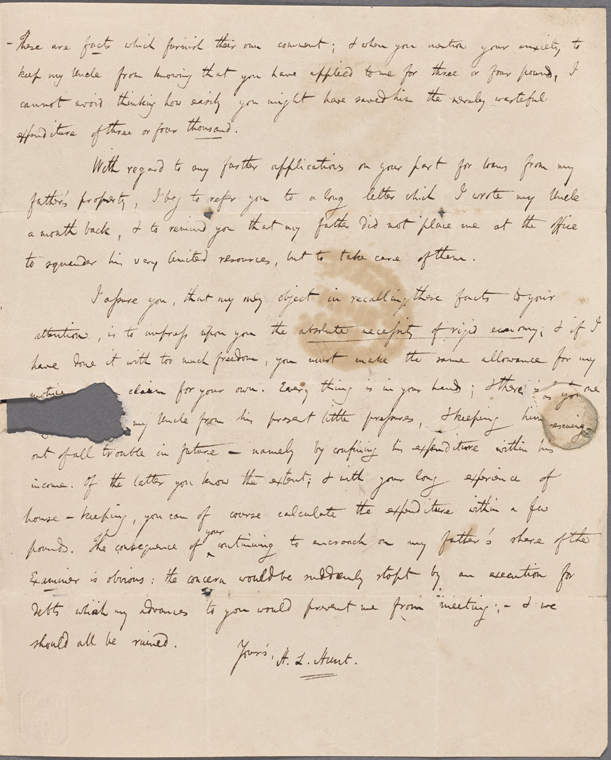 - These are facts which furnish their own comment; & when you mention your anxiety to
keep my Uncle from knowing that you have applied to me for three or four pounds, I
cannot avoid thinking how easily you might have saved him the wasteful
expenditure of three or four thousand.
With regard to any further applications on your part for loans from my
father's property, I beg to refer you to a long letter which I wrote my Uncle
a month back, & to remind you that my father did not place me at the office
to squander his very limited resources, but to take care of them.
I assure you, that my only object in recalling these facts to your
attention, is to impress upon you the absolute necessity of rigid economy; & if I
have done it with too much freedom, you must make the same allowance for my
claim for your own. Every thing is in your hands; & there is but one
my Uncle from his present little pressures, & keeping him
out of all trouble in future – namely by confining his expenditure within his
income. Of the latter you know the extent; & with your long experience of
house-keeping, you can of course calculate the expenditure within a few
pounds. The consequence of your continuing to encroach on my father's share of the
Examiner is obvious: the concern would be suddenly stopt by an execution for
debts which my advances to you would prevent me from meeting; – & we
should all be ruined.
Your's, H. L. Hunt.